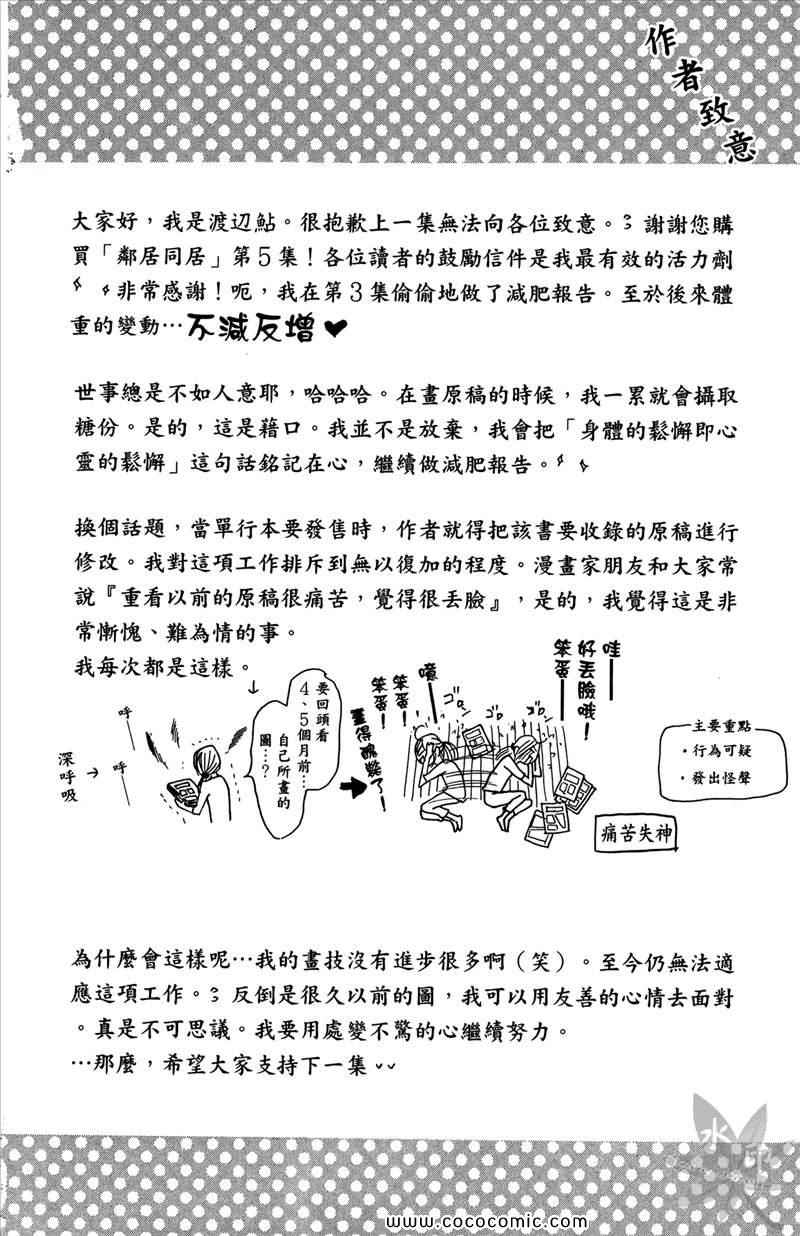 作者致意
大家好，我是渡辺鮎。很抱歉上一集無法向各位致意。謝謝您購
買「鄰居同居」第5集！各位讀者的鼓勵信件是我最有效的活力劑
非常感謝！呃，我在第3集偷偷地做了減肥報告。至於後來體
重的變動…不減反增♥
世事總是不如人意耶，哈哈哈。在畫原稿的時候，我一累就會攝取
糖份。是的，這是藉口。我並不是放棄，我會把「身體的鬆懈即心
靈的鬆懈」這句話銘記在心，繼續做減肥報告。
換個話題，當單行本要發售時，作者就得把該書要收錄的原稿進行
修改。我對這項工作排斥到無以復加的程度。漫畫家朋友和大家常
說『重看以前的原稿很痛苦，覺得很丟臉』，是的，我覺得這是非
常慚愧、難為情的事。
我每次都是這樣。
深呼吸→
呼——
呼——
要回頭看
4、5個月前…
自己所畫的
圖…？
畫得醜斃了！
笨蛋！
笨蛋！
噫——
ゴロ
ゴロ
笨蛋——
好丟臉哦！
哇——
主要重點
・行為可疑
・發出怪聲
痛苦失神
為什麼會這樣呢…我的畫技沒有進步很多啊（笑）。至今仍無法適
應這項工作。反倒是很久以前的圖，我可以用友善的心情去面對
。真是不可思議。我要用處變不驚的心繼續努力。
…那麼，希望大家支持下一集
水印
www.cococomic.com